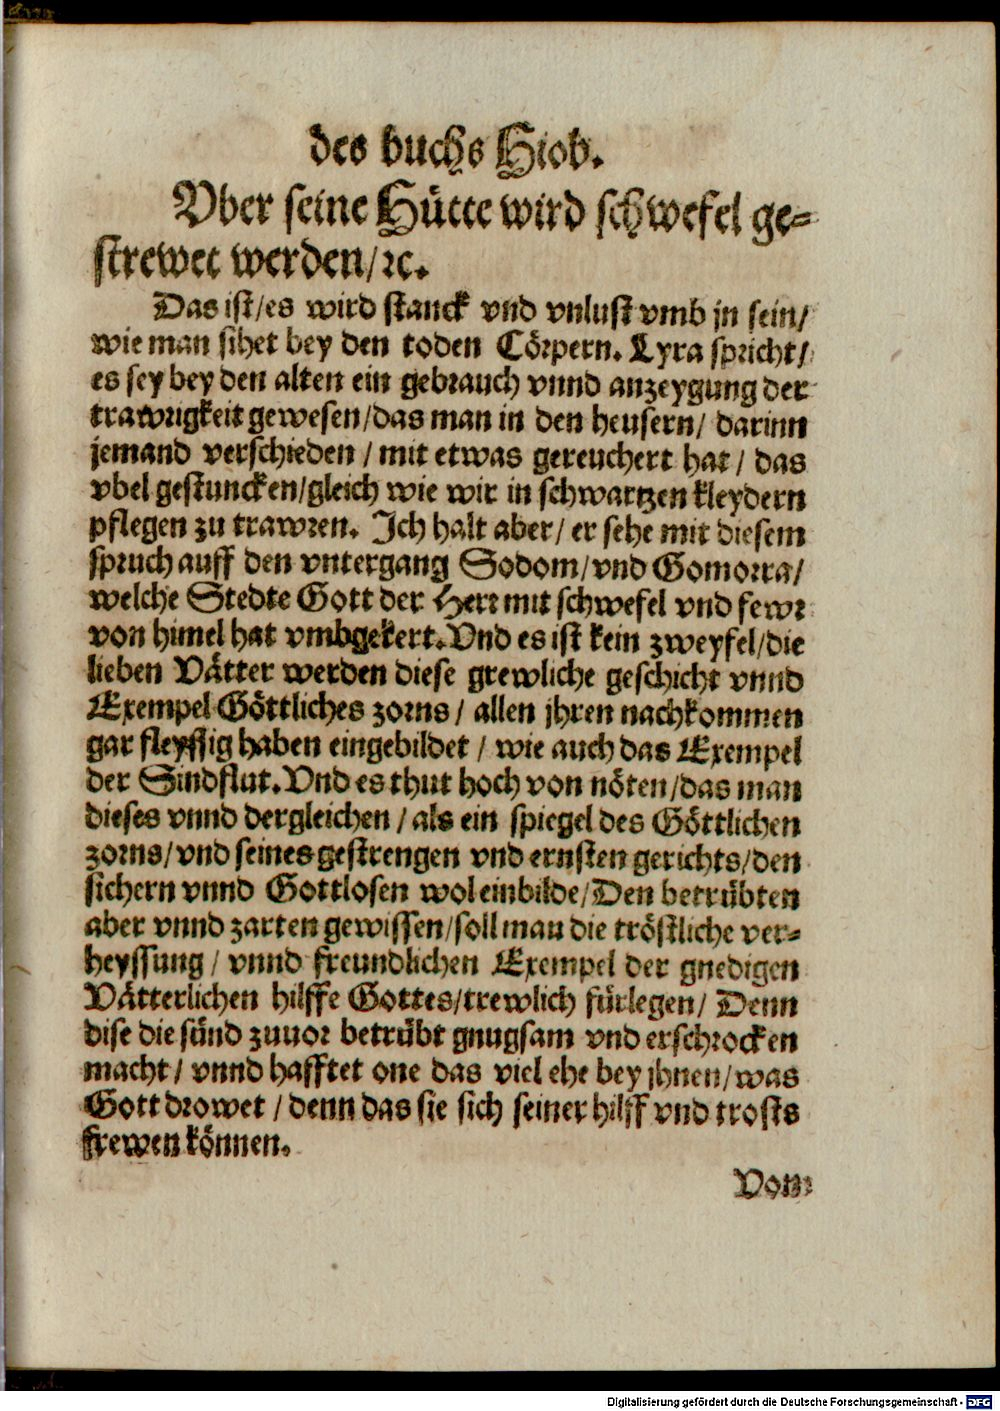 des buchs Hiob.
Vber seine Hütte wird schwefel ge-
strewet werden/ꝛc.
Das ist/es wird stanck vnd vnlust vmb jn sein/
wie man sihet bey den toden Cörpern. Lyra spricht/
es sey bey den alten ein gebrauch vnnd anzeygung der
trawrigkeit gewesen/das man in den heusern/ darinn
jemand verschieden / mit etwas gereuchert hat/ das
vbel gestuncken/gleich wie wir in schwartzen kleydern
pflegen zu trawren. Ich halt aber/ er sehe mit diesem
spruch auff den vntergang Sodom/vnd Gomorra/
welche Stedte Gott der Herr mit schwefel vnd fewr
von himel hat vmbgekert. Vnd es ist kein zweyfel/die
lieben Vätter werden diese grewliche geschicht vnnd
Exempel Göttliches zorns/ allen jhren nachkommen
gar fleyssig haben eingebildet / wie auch das Exempel
der Sindflut. Vnd es thut hoch von nöten/das man
dieses vnnd dergleichen / als ein spiegel des Göttlichen
zorns/vnd seines gestrengen vnd ernsten gerichts/den
sichern vnnd Gottlosen wol einbilde/Den betrübten
aber vnnd zarten gewissen/soll man die tröstliche ver-
heyssung / vnnd freundlichen Exempel der gnedigen
Vätterlichen hilffe Gottes/trewlich fürlegen/ Denn
dise die sünd zuuor betrübt gnugsam vnd erschrocken
macht/ vnnd hafftet one das viel ehe bey jhnen/was
Gott drowet / denn das sie sich seiner hilff vnd trosts
frewen können.
Vom
Digitalisierung gefördert durch die Deutsche Forschungsgemeinschaft - DFG